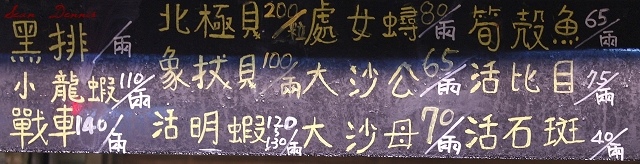 Sean Dennis
黑排 /兩 北極貝 200/粒 處女蟳 80/兩 筍殼魚 65/兩
小龍蝦 110/兩 象拔貝 100/兩 大沙公 65/兩 活比目 75/兩
戰車 140/兩 活明蝦 120~130/兩 大沙母 70/兩 活石斑 40/兩